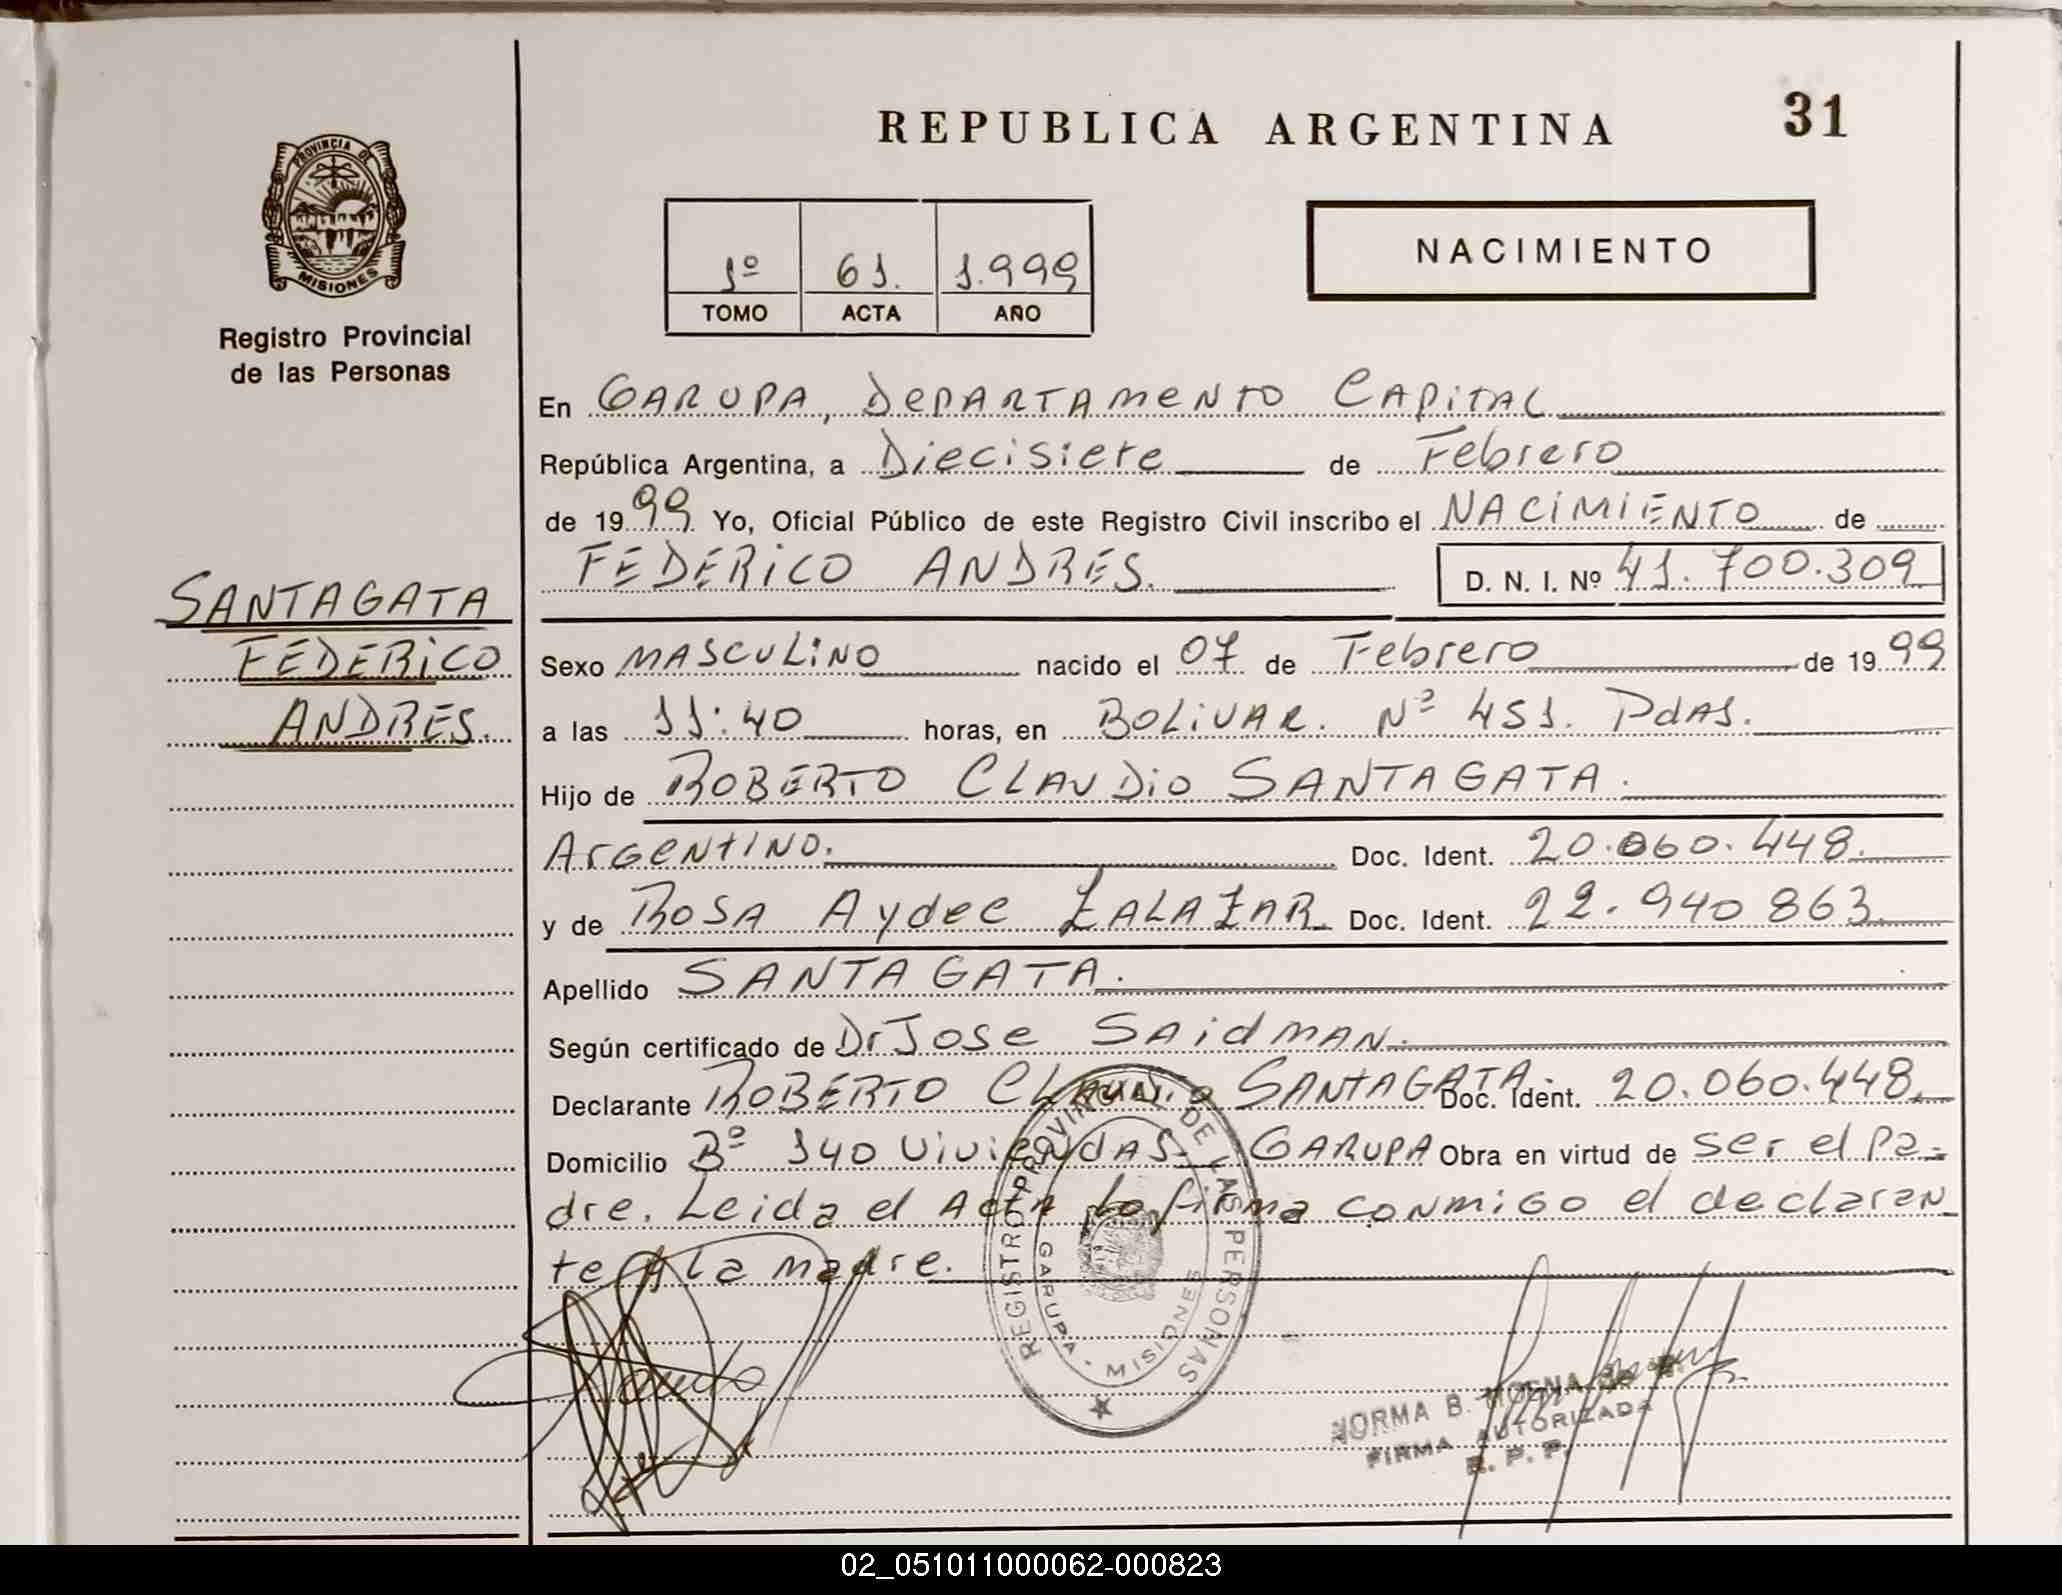 REPUBLICA ARGENTINA
31
PROVINCIA DE
MISIONES
Registro Provincial
de las Personas
1º 61. 1.999
TOMO ACTA AÑO
NACIMIENTO
En GARUPA, DEPARTAMENTO CAPITAL
República Argentina, a Diecisiete de Febrero
de 1999 Yo, Oficial Público de este Registro Civil inscribo el NACIMIENTO de
FEDERICO ANDRES. D. N. I. Nº 41.700.309
SANTAGATA
FEDERICO
ANDRES.
Sexo MASCULINO nacido el 07 de Febrero de 1999
a las 11:40 horas, en BOLIVAR. Nº 451. PdAS.
Hijo de ROBERTO CLAUDIO SANTAGATA.
ArgentINO. Doc. Ident. 20.060.448.
y de ROSA Aydee ZALAZAR Doc. Ident. 22.940863.
Apellido SANTAGATA.
Según certificado de Dr JOSE SAIDMAN.
Declarante ROBERTO CLAUDIO SANTAGATA. Doc. Ident. 20.060.448.
Domicilio Bº 140 ViviendAS. GARUPA Obra en virtud de ser el Pa-
dre. Leida el Acta lo firma conmigo el declaran
te y la madre.
REGISTRO PROVINCIAL DE LAS PERSONAS
GARUPA - MISIONES
NORMA B.
FIRMA AUTORIZADA
R. P. P.
02_051011000062-000823